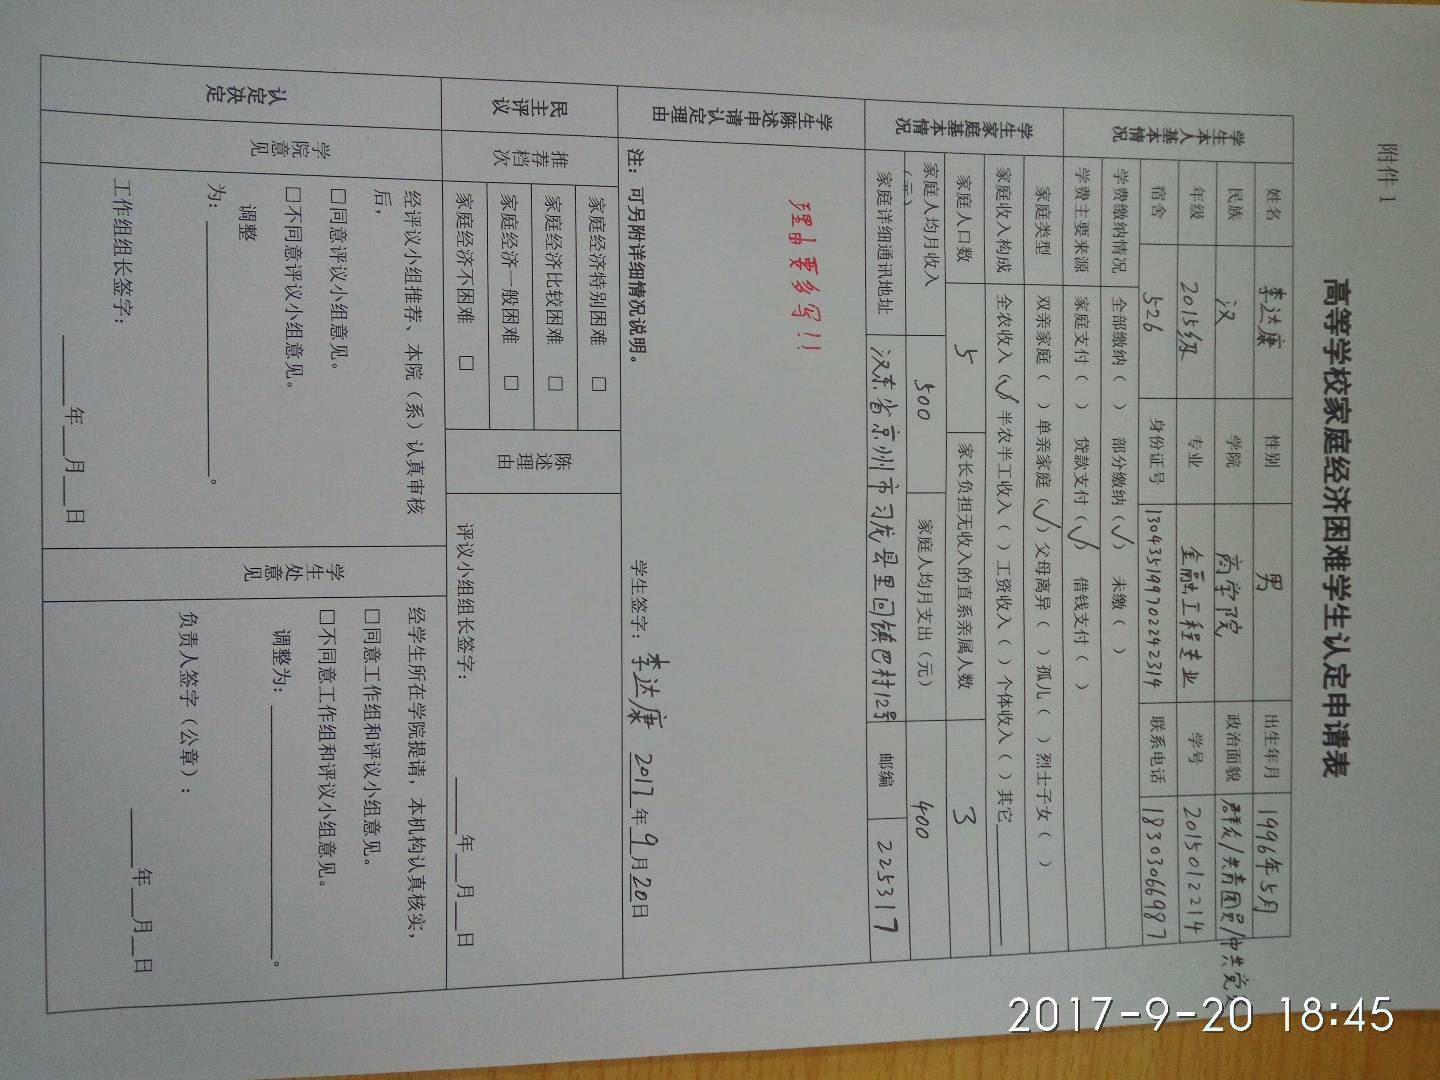 附件 1
高等学校家庭经济困难学生认定申请表
学生本人基本情况
姓名 李达康 性别 男 出生年月 1996年5月
民族 汉 学院 商学院 政治面貌 群众/共青团员/中共党员
年级 2015级 专业 金融工程专业 学号 2015012214
宿舍 526 身份证号 130435199702242314 联系电话 18303066987
学费缴纳情况 全部缴纳（ ） 部分缴纳（✓） 未缴（ ）
学费主要来源 家庭支付（ ） 贷款支付（✓） 借钱支付（ ）
学生家庭基本情况
家庭类型 双亲家庭（ ）单亲家庭（✓）父母离异（ ）孤儿（ ）烈士子女（ ）
家庭收入构成 全农收入（✓）半农半工收入（ ）工资收入（ ）个体收入（ ）其它
家庭人口数 5 家长负担无收入的直系亲属人数 3
家庭人均月收入（元） 500 家庭人均月支出（元） 400
家庭详细通讯地址 汉东省京州市 县里回镇巴村12号 邮编 225317
学生陈述申请认定理由
理由要多写!!
注：可另附详细情况说明。
学生签字：李达康 2017年9月20日
民主评议
推荐档次
家庭经济特别困难 □
家庭经济比较困难 □
家庭经济一般困难 □
家庭经济不困难 □
陈述理由
评议小组组长签字：
年 月 日
认定决定
学院意见
经评议小组推荐、本院（系）认真审核
后，
□同意评议小组意见。
□不同意评议小组意见。
调整
为： 。
工作组组长签字：
年 月 日
学生处意见
经学生所在学院提请，本机构认真核实，
□同意工作组和评议小组意见。
□不同意工作组和评议小组意见。
调整为： 。
负责人签字（公章）：
年 月 日
2017-9-20 18:45